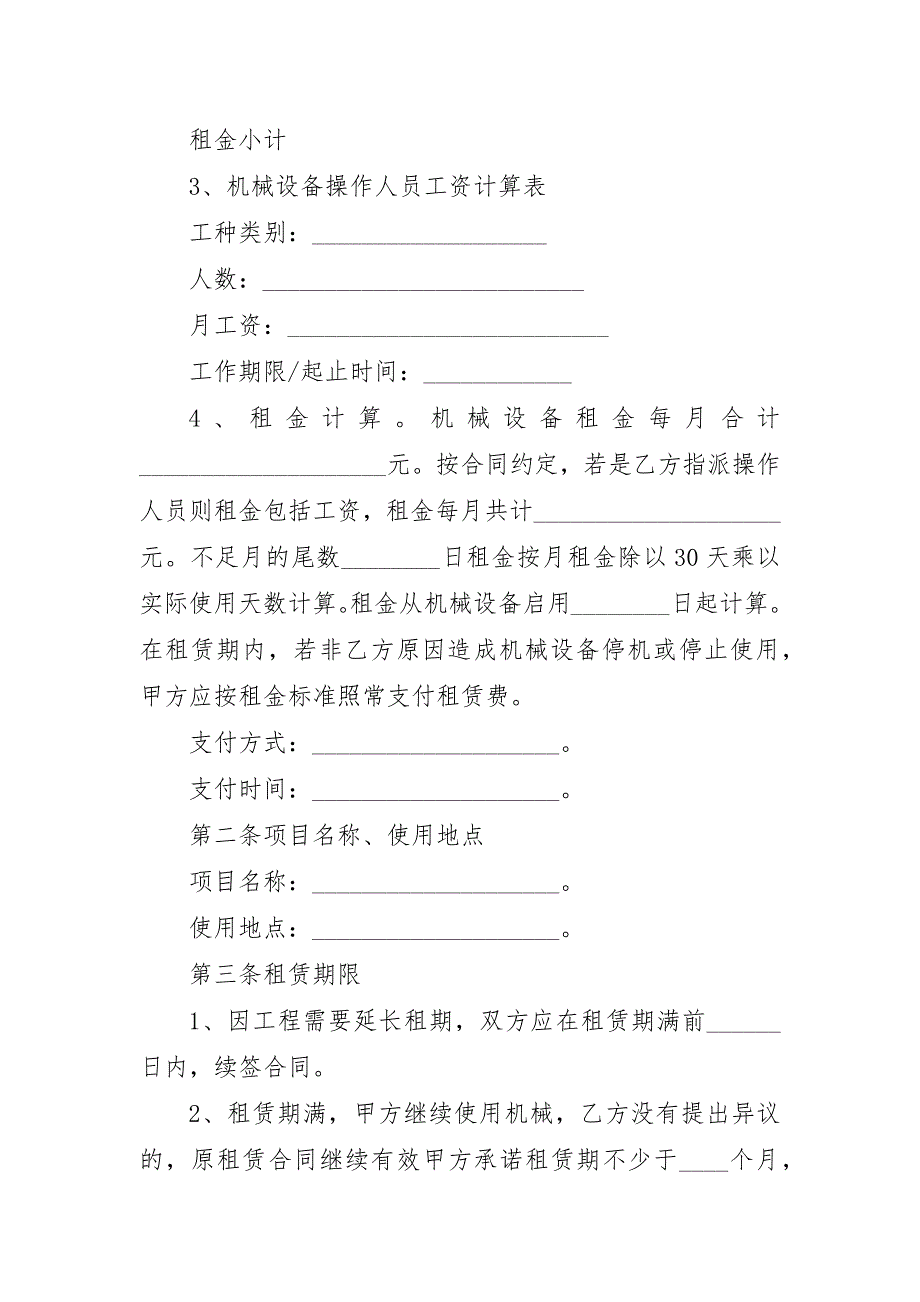 租金小计
3、机械设备操作人员工资计算表
工种类别：___________________
人数：__________________________
月工资：__________________________
工作期限/起止时间：____________
4、租金计算。机械设备租金每月合计
____________________元。按合同约定，若是乙方指派操作
人员则租金包括工资，租金每月共计____________________
元。不足月的尾数________日租金按月租金除以30天乘以
实际使用天数计算。租金从机械设备启用________日起计算。
在租赁期内，若非乙方原因造成机械设备停机或停止使用，
甲方应按租金标准照常支付租赁费。
支付方式：____________________。
支付时间：____________________。
第二条项目名称、使用地点
项目名称：____________________。
使用地点：____________________。
第三条租赁期限
1、因工程需要延长租期，双方应在租赁期满前______
日内，续签合同。
2、租赁期满，甲方继续使用机械，乙方没有提出异议
的，原租赁合同继续有效甲方承诺租赁期不少于____个月，